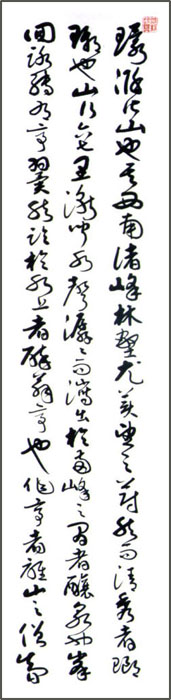 環滁皆山也其西南諸峰林壑尤美望之蔚然而清秀者瑯
琊也山行六七里漸聞水聲潺々而瀉出於兩峰之間者釀泉也峯
回路轉有亭翼然臨於泉上者醉翁亭也作亭者誰山之僧智